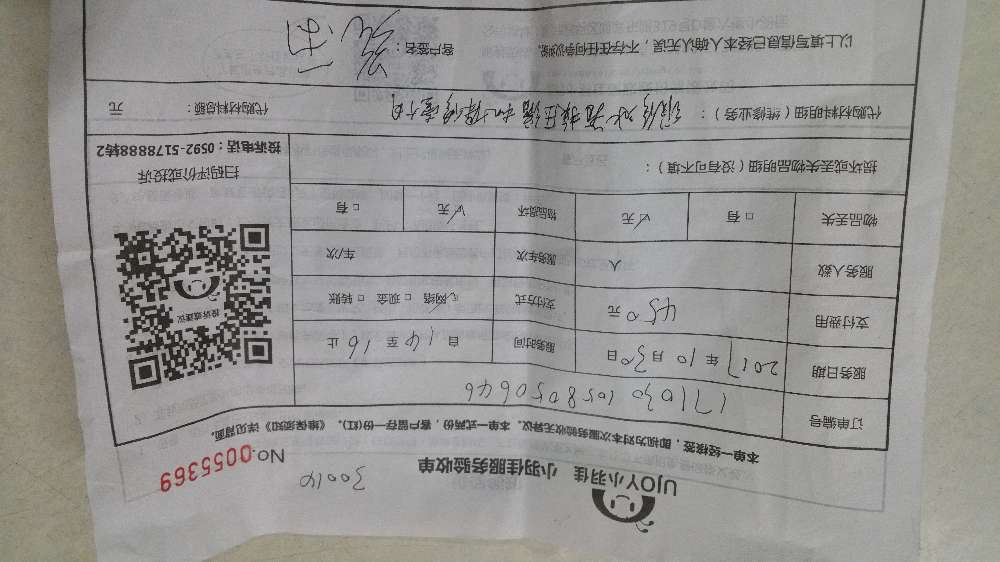 UJOY小羽佳 小羽佳服务验收单
30014
No 0055369
本单一经核签，即视为对本次服务验收确认、无异议。本单一式两份，客户留存一份(红)。《维保须知》详见背面。
订单编号 171030105805 0646
服务日期 2017年10月30日 服务时间 自14至16止
支付费用 450元 支付方式 网络 □现金 □转账
服务人数 人 服务车次 车/次
物品丢失 □有 ☑无 物品损坏 ☑无 □有
投诉或建议
扫码评价或投诉
投诉电话：0592-5178888转2
损坏或丢失物品明细（没有可不填）：
代购材料明细（维修业务）： 代购材料总额： 元
以上填写信息已经本人确认无误，不存在任何争议。 客户签名：